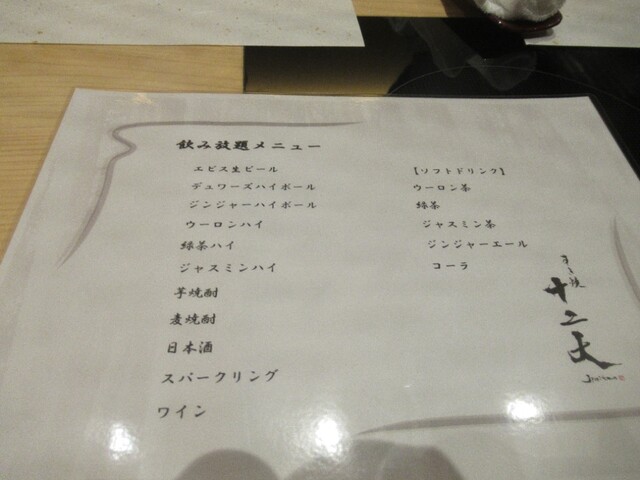 飲み放題メニュー
エビス生ビール
デュワーズハイボール
ジンジャーハイボール
ウーロンハイ
緑茶ハイ
ジャスミンハイ
芋焼酎
麦焼酎
日本酒
スパークリング
ワイン
【ソフトドリンク】
ウーロン茶
緑茶
ジャスミン茶
ジンジャーエール
コーラ
すき焼
十二天